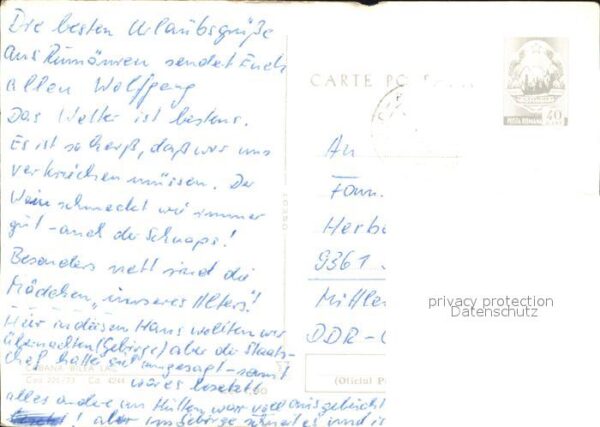 Die besten Urlaubsgrüße
aus Rumänien sendet Euch
allen Wolfgang
Das Wetter ist bestens.
Es ist so heiß, daß wir uns
verkriechen müssen. Der
Wein schmeckt wie immer
gut - auch der Schnaps!
Besonders nett sind die
Mädchen, "unseres Alters"!
Hier in diesem Haus wollten wir
übernachten (Gebirge) aber der Staats-
chef hatte sich angesagt - somit
wäres besetzt
alles andere an Hütten war voll ausgebucht
! aber im Gebirge
CARTE PO
POSTA ROMANA 40
An
Fam.
Herbe
9361
Mittler
DDR-
(Oficiul P
privacy protection
Datenschutz